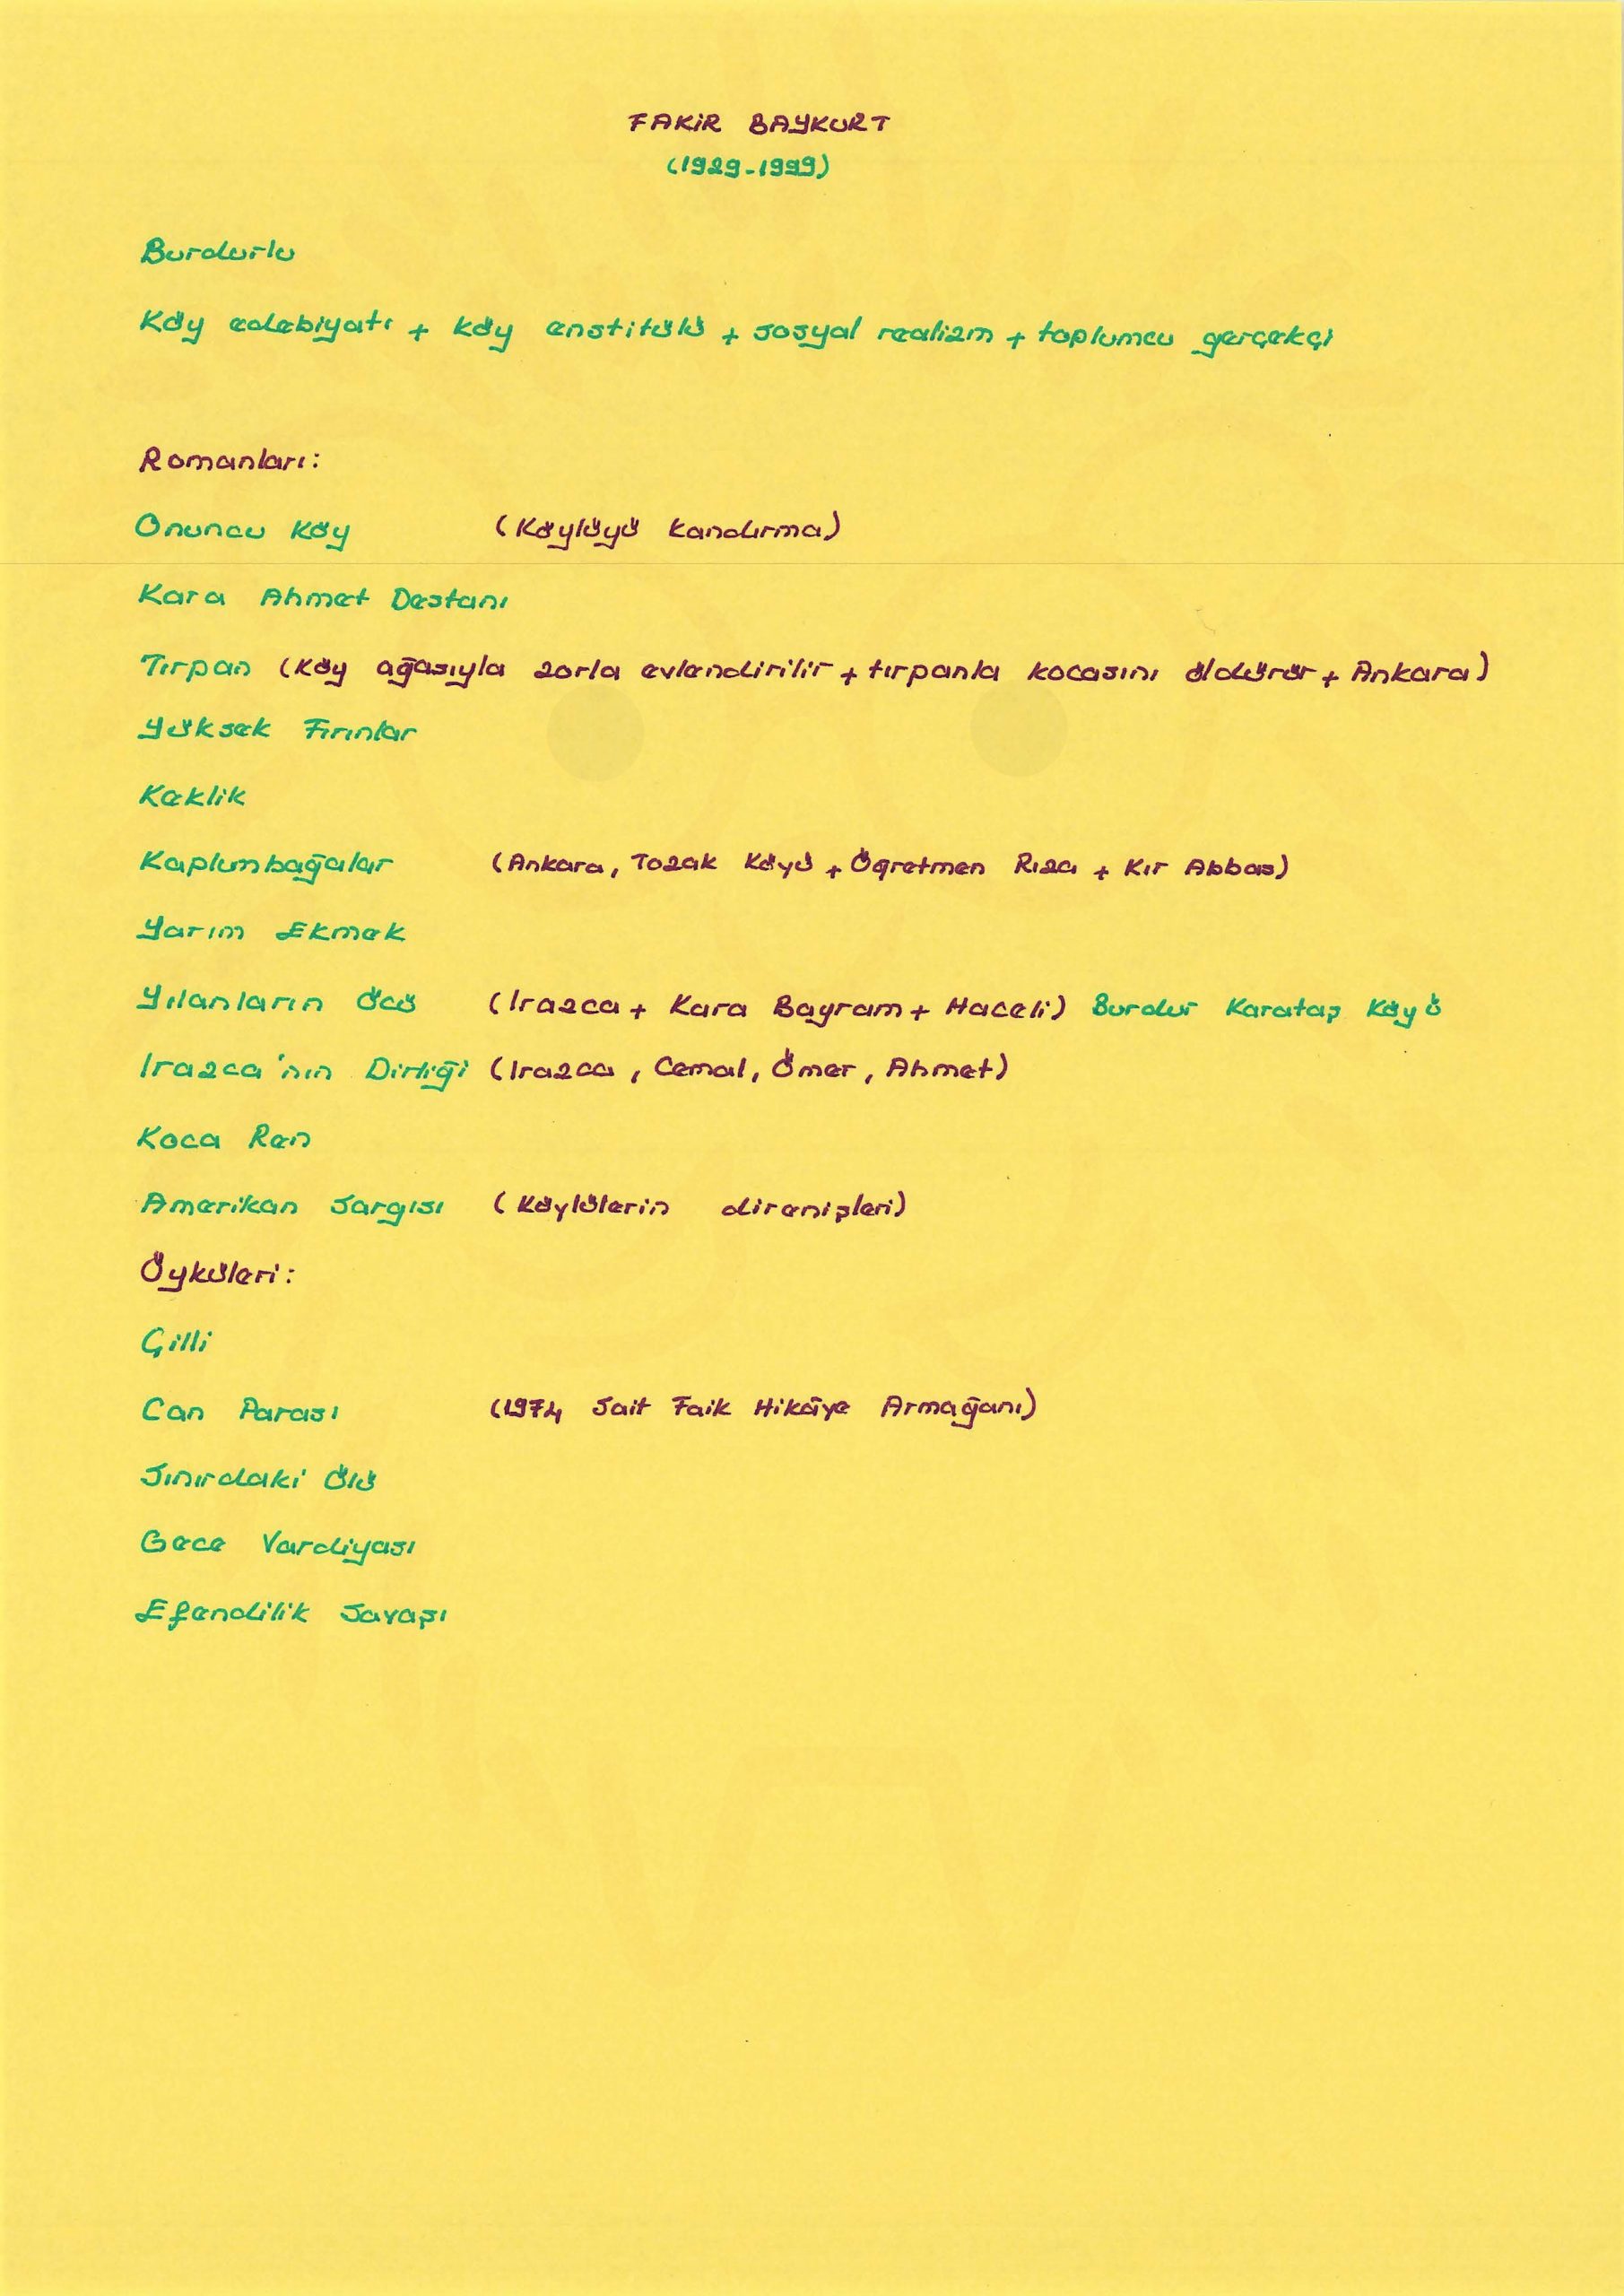 FAKİR BAYKURT
(1929-1999)
Burdurlu
Köy edebiyatı + köy enstitülü + sosyal realizm + toplumcu gerçekçi
Romanları:
Onuncu Köy (Köylüyü kandırma)
Kara Ahmet Destanı
Tırpan (Köy ağasıyla zorla evlendirilir + tırpanla kocasını öldürür + Ankara)
Yüksek Fırınlar
Keklik
Kaplumbağalar (Ankara, Tozak Köyü + Öğretmen Rıza + Kır Abbas)
Yarım Ekmek
Yılanların Öcü (Irazca + Kara Bayram + Haceli) Burdur Karataş Köyü
Irazca'nın Dirliği (Irazca, Cemal, Ömer, Ahmet)
Koca Ren
Amerikan Sargısı (Köylülerin direnişleri)
Öyküleri:
Çilli
Can Parası (1974 Sait Faik Hikâye Armağanı)
Sınırdaki Ölü
Gece Vardiyası
Efendilik Savaşı